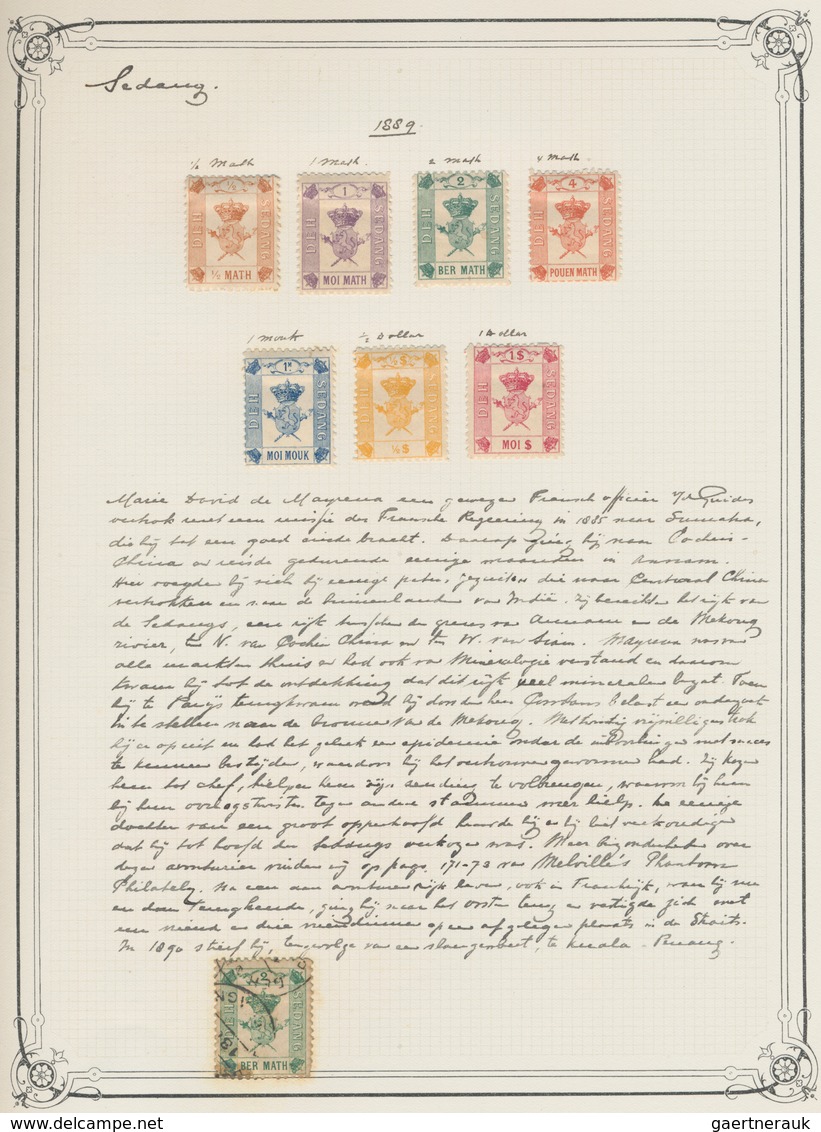 Sedang.
1889.
½ Math 1 Math. 2 Math 4 Math.
½ 1 2 4
DEH SEDANG DEH SEDANG DEH SEDANG DEH SEDANG
½ MATH MOI MATH BER MATH POUEN MATH
1 Mouk ½ Dollar 1 Dollar
1M ½$ 1$
DEH SEDANG DEH SEDANG DEH SEDANG
MOI MOUK ½$ MOI $
Marie David de Mayrena een gewezen Fransch officier Guides
vertrok met een missie der Fransche Regeering in 1885 naar Sumatra,
die hij tot een goed einde bracht. Daarop ging hij naar Cochin-
China en reisde gedurende eenige maanden in Annam.
Hier voegde hij zich bij eenige paters jezuiten die naar Centraal China
vertrokken en naar de binnenlanden van Indië. Zij bereikten het rijk van
de Sedangs, een rijk tusschen de grens van Annam en de Mekong
rivier, ten N. van Cochin China en ten W. van Siam. Mayrena was van
alle markten thuis en had ook van Mineralogie verstand en daarom
kwam hij tot de ontdekking dat dit rijk veel mineralen bezat. Toen
hij te Parijs terugkwam werd hij door den heer Constans belast een onderzoek
in te stellen naar de bronnen van de Mekong. Met twintig vrijwilligers trok
hij er op uit en had het geluk een epidemie onder de inboorlingen met succes
te kunnen bestrijden, waardoor hij het vertrouwen gewonnen had. Zij kozen
hem tot chef, hielpen hem zijn zending te volbrengen, waarom hij hen
bij hun oorlogstwisten tegen andere stammen weer hielp. De eenige
dochter van een groot opperhoofd huwde hij en hij liet verkondigen
dat hij tot hoofd der Sedangs verkozen was. Meer bijzonderheden over
dezen avonturier vinden wij op pag. 171-73 van Melville's Phantom
Philately. Na een aan avonturen rijk leven, ook in Frankrijk, waar hij nu
en dan terugkeerde, ging hij naar het oosten terug en vestigde zich met
een vriend en drie vriendinnen op een afgelegen plaats in de Straits.
In 1890 stierf hij, tengevolge van een slangenbeet, te Kuala - Penang.
2
DEH SEDANG
BER MATH
gaertnerauk